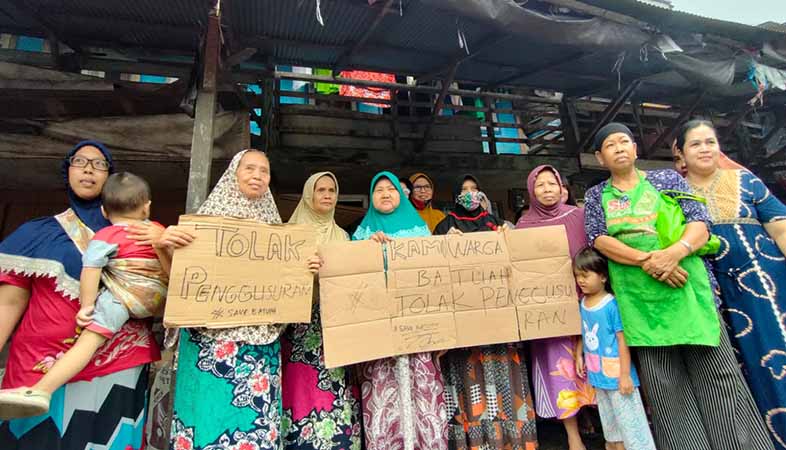 TOLAK
PENGGUSURAN
# SAVE BATUAH
KAMI WARGA
BATUAH
TOLAK PENGGUSU
RAN